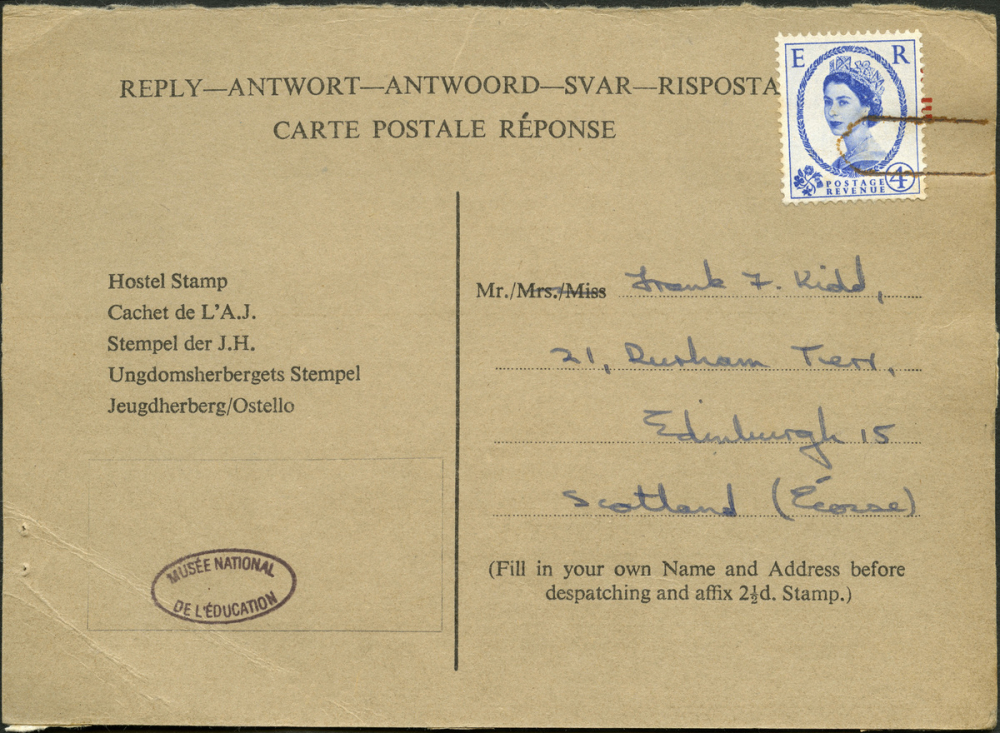 REPLY—ANTWORT—ANTWOORD—SVAR—RISPOSTA
CARTE POSTALE RÉPONSE
E R
POSTAGE
REVENUE
4D
Hostel Stamp
Cachet de L'A.J.
Stempel der J.H.
Ungdomsherbergets Stempel
Jeugdherberg/Ostello
MUSÉE NATIONAL
DE L'ÉDUCATION
Mr./Mrs./Miss Frank F. Kidd,
21, Durham Terr,
Edinburgh 15
Scotland (Écosse)
(Fill in your own Name and Address before
despatching and affix 2½d. Stamp.)